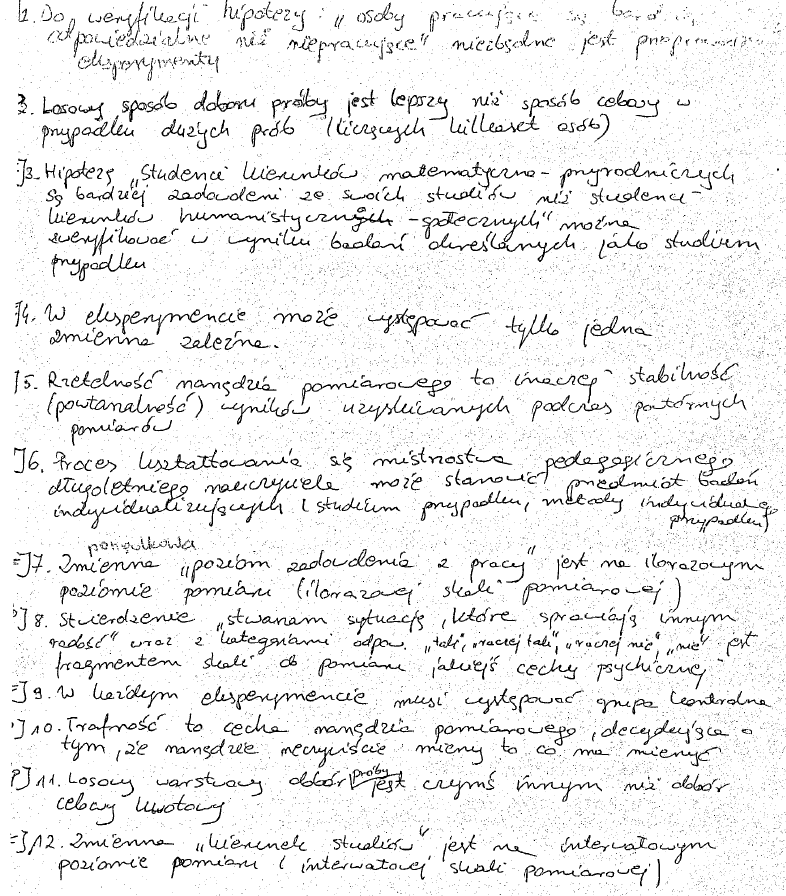 1. Do weryfikacji hipotezy: „osoby pracujące są bard
odpowiedzialne niż niepracujące" niezbędne jest
eksperymenty
2. Losowy sposób doboru próby jest lepszy niż sposób celowy w
przypadku dużych prób (liczących kilkaset osób)
]3. Hipotezę „studenci kierunków matematyczno-przyrodniczych
są bardziej zadowoleni ze swoich studiów niż studenci
kierunków humanistycznych - społecznych" można
zweryfikować w wyniku badań określanych jako studium
przypadku
]4. W eksperymencie może występować tylko jedna
zmienna zależna.
]5. Rzetelność narzędzia pomiarowego to inaczej stabilność
(powtarzalność) wyników uzyskiwanych podczas powtórnych
pomiarów
]6. Proces kształtowania się mistrzostwa pedagogicznego
długoletniego nauczyciela może stanowić przedmiot badań
indywidualizujących (studium przypadku, metody indywidualnego
przypadku)
porządkowa
]7. Zmienna „poziom zadowolenia z pracy" jest na ilorazowym
poziomie pomiaru (ilorazowej skali pomiarowej)
]8. Stwierdzenie „stwarzam sytuacje, które sprawiają innym
radość" wraz z kategoriami odpow. „tak", „raczej tak", „raczej nie", „nie" jest
fragmentem skali do pomiaru jakiejś cechy psychicznej
]9. W każdym eksperymencie musi występować grupa kontrolna
]10. Trafność to cecha narzędzia pomiarowego, decydująca o
tym, że narzędzie rzeczywiście mierzy to co ma mierzyć
P]11. Losowy warstwowy dobór próby jest czymś innym niż dobór
celowy kwotowy
]12. Zmienna „kierunek studiów" jest na interwałowym
poziomie pomiaru (interwałowej skali pomiarowej)